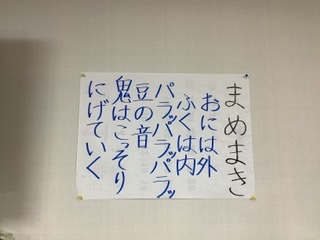 まめまき
おには外
ふくは内
パラッパラッパラッ
豆の音
鬼はこっそり
にげていく